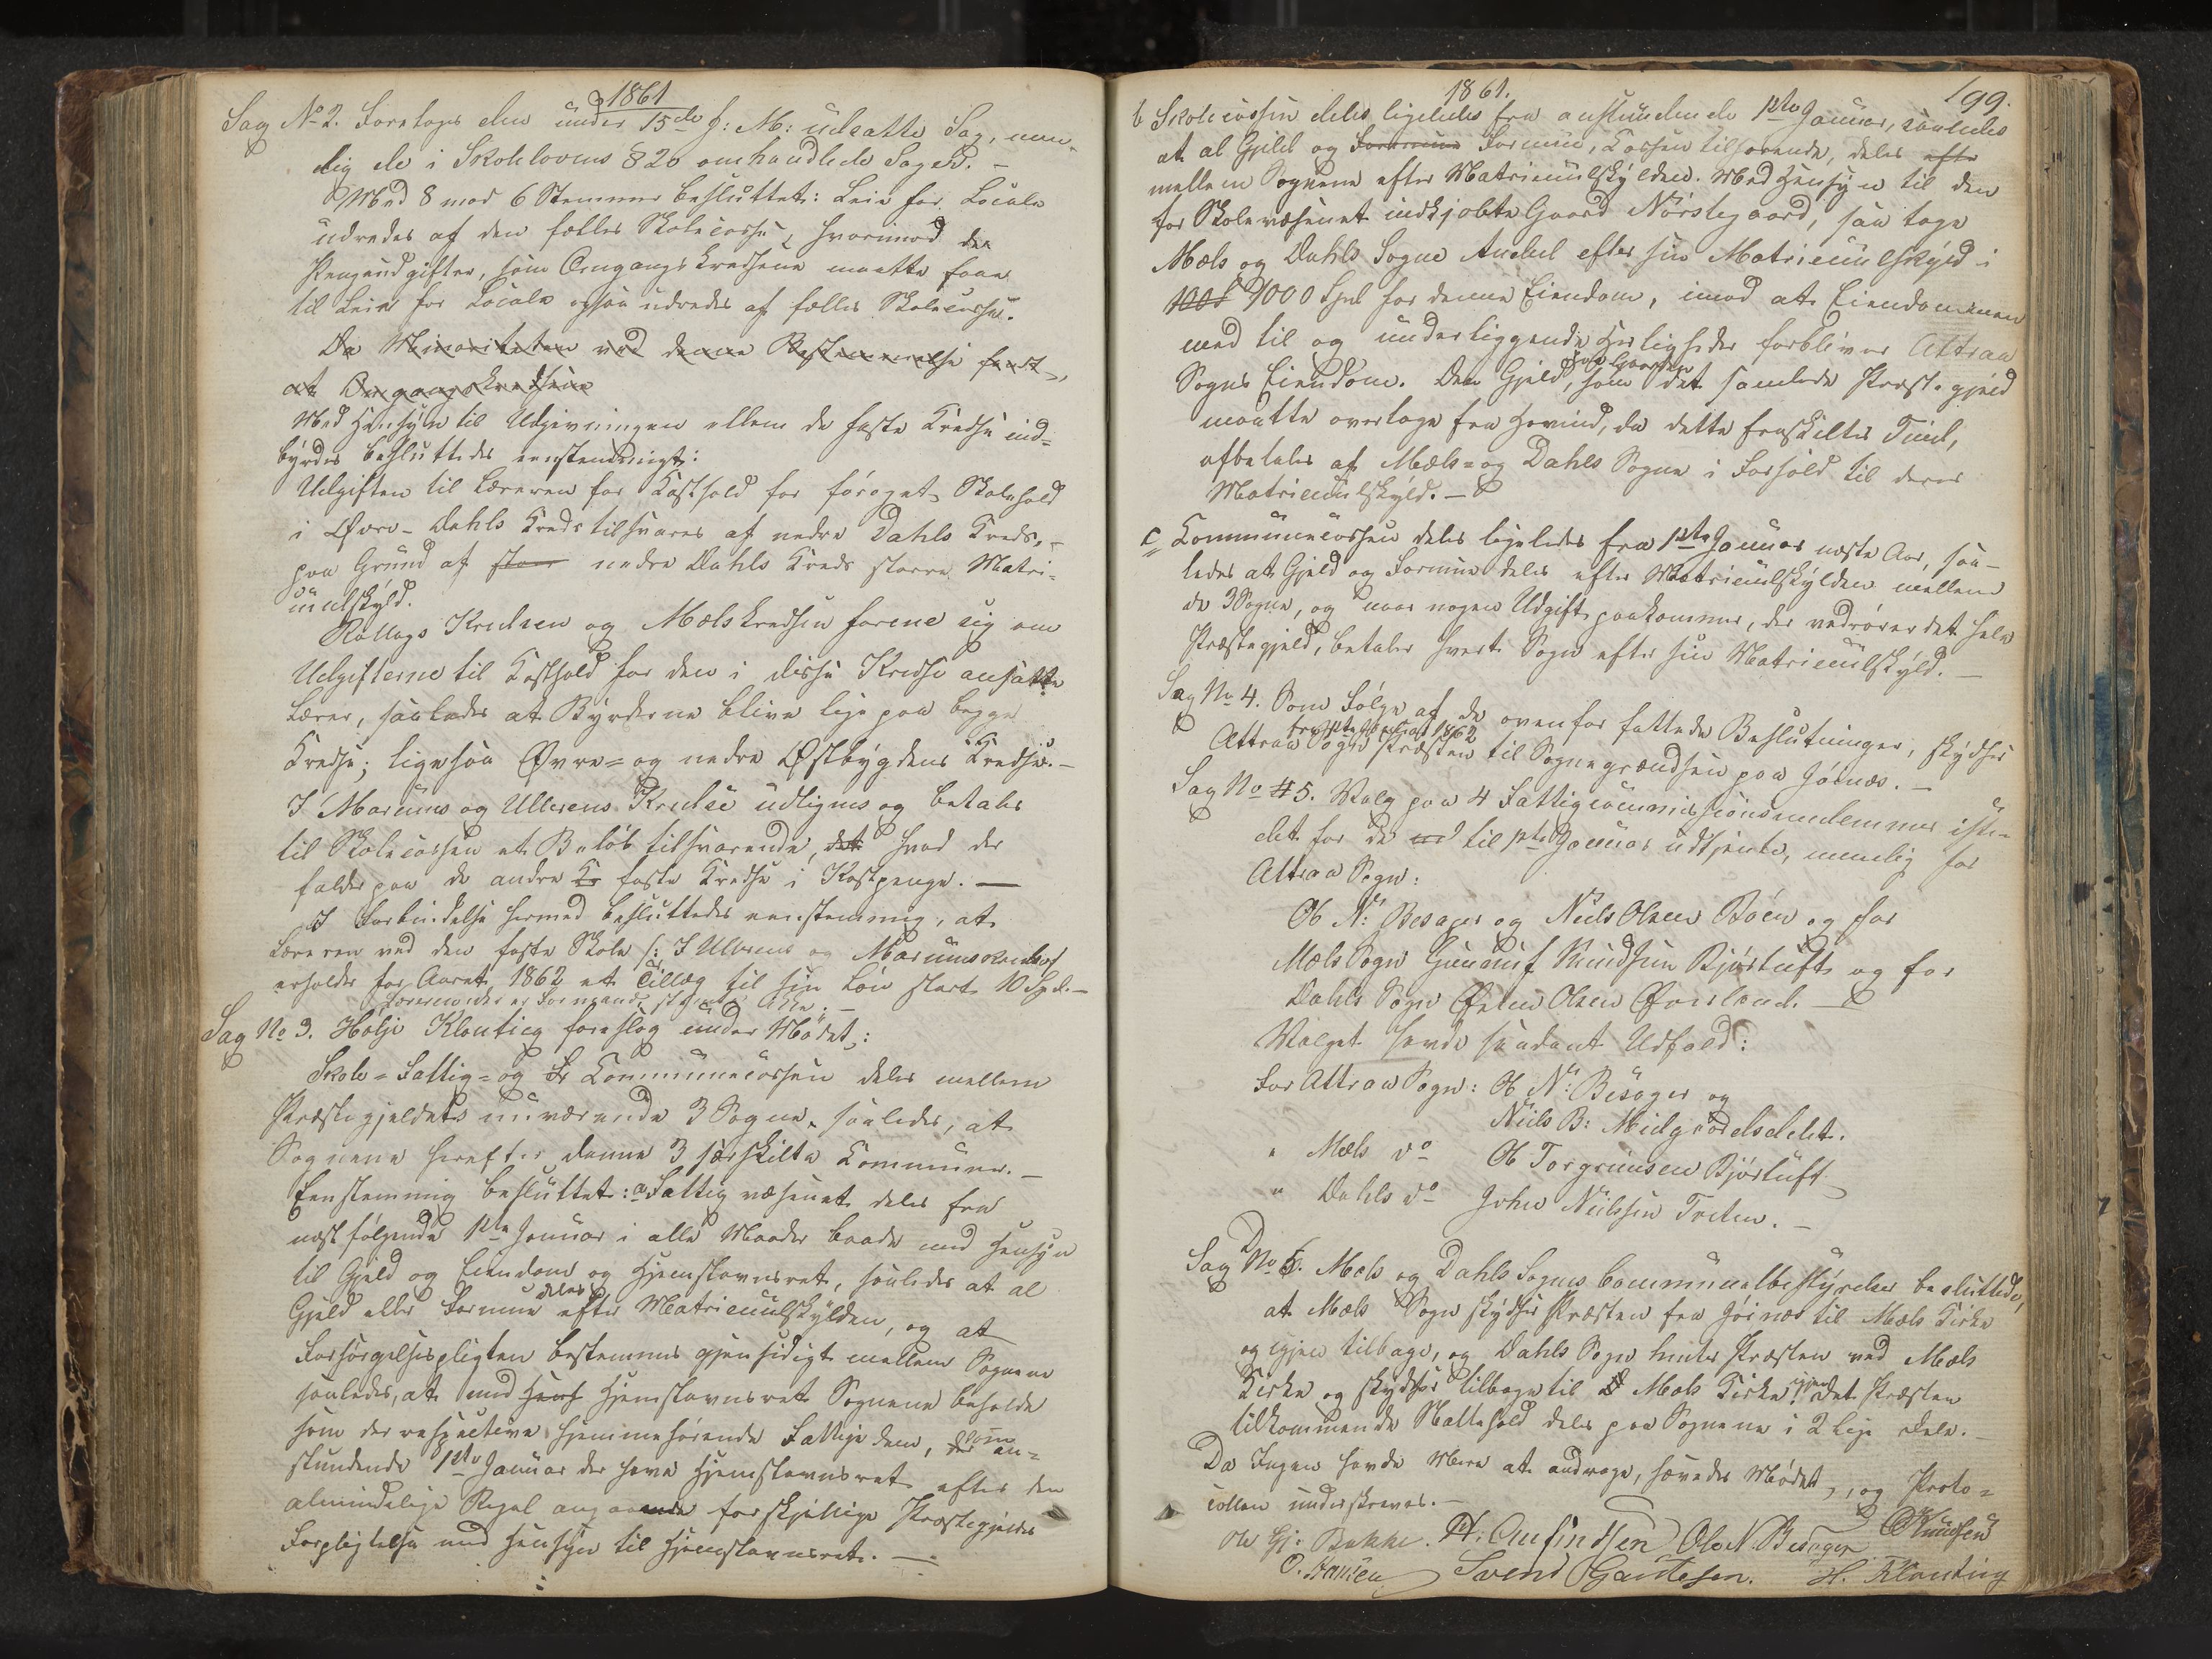 1861
Sag No 2. Foretoges den under 15de f: M: udsatte Sag, nem-
lig de i Skolelovens § 20 omhandlede Sager. -
Med 8 mod 6 Stemmer besluttet: Leie for Locale
udredes af den fælles Skolecasse, hvorimod de
Pengeudgifter, som Omgangskredsene maatte faae
til Leie for Locale ogsaa udredes af fælles Skolecasse.
Da Minoriteten ved denne Bestemmelse
at Omgangskredsene
Med Hensyn til Udgivningen ellem de faste Kredse ind-
byrdes besluttedes eenstemmigt:
Udgiften til Læreren for Kosthold for forøget Skolehold
i Øvre-Dahls Kreds tilsvares af nedre Dahls Kreds, -
paa Grund af nedre Dahls Kreds større Matri-
culskyld.
Rollags Kredsen og Mælskredsen forene sig om
Udgifterne til Kosthold for den i disse Kredse ansatte
Lærer, saaledes at Byrderne blive lige paa begge
Kredse; ligesaa Øvre- og nedre Østbygdens Kredse. -
I Marums og Ullerens Kredse udlignes og betales
til Skolecassen et Beløb tilsvarende, det hvad der
falder paa de andre K faste Kredse i Kostpenge. -
I Forbindelse hermed besluttedes eenstemmig, at
Læreren ved den faste Skole /: I Ullerens og Marumskreds:/
erholder for Aaret 1862 et Tillæg til sin Løn stort 10 Spd. -
Sag No 3. Holje Klonteig foreslog under Mødet:
Skole- Fattig- og Fr Communecassen deles mellem
Præstegjeldets nuværende 3 Sogne, saaledes, at
Sognene herefter danne 3 særskilte Communer. -
Eenstemmig besluttet: a Fattigvæsenet deles fra
næstfølgende 1ste Januar i alle Maader baade med Hensyn
til Gjeld og Eiendom og Hjemstavnsret, saaledes at al
Gjeld eller Formue deles efter Matriculskylden, og at
Forsørgelsespligten bestemmes gjensidigt mellem Sognene
saaledes, at med Hens Hjemstavnsret Sognene beholde
som der respective hjemmehørende Fattige dem, der som an-
stundende 1ste Januar der have Hjemstavnsret efter den
almindelige Regel angaaende forskjellige Præstegjeldes
Forpligtelse med Hensyn til Hjemstavnsret. -
1861. 199.
b Skolecassen deles ligeledes fra anstundende 1ste Januar, saaledes
at al Gjeld og Formue Formue, Cassen tilhørende, deles efter
mellem Sognene efter Matriculskylden. Med Hensyn til den
for Skolevæsenet indkjøbte Gaard Nørstegaard, saa tage
Mæls og Dahls Sogne Andeel efter sin Matriculskyld i
100 1000 Spd for denne Eiendom, imod at Eiendommen
med til og underliggende Herligheder forbliver Attraa
Sogns Eiendom. Den Gjeld, paa Gaarden som det samlede Præstegjeld
maatte overtage fra Hovind, da dette fraskiltes Tind,
afbetales af Mæls- og Dahls Sogne i Forhold til deres
Matriculskyld. -
c Communecassen deles ligeledes fra 1ste Januar næste Aar, saa-
ledes at Gjeld og Formue deles efter Matriculskylden mellem
de 3 Sogne, og naar nogen Udgift paakommer, der vedrører det hele
Præstegjeld, betaler hvert Sogn efter sin Matriculskyld. -
Sag No 4. Som Følge af de ovenfor fattede Beslutninger, skydser
Attraa Sogn Præsten til Sognegrændsen paa Gøinæs. -
Sag No 5. Valg paa 4 Fattigcommissionsmedlemmer iste-
det for de ud til 1ste Januar udtjente, nemlig for
Attraa Sogn:
Ole N: Besager og Niels Olsen Bøen og for
Mæls Sogn Gunnuf Knudsen Bjørtuft og for
Dahls Sogn Østen Olsen Øverland. -
Valget havde saadant Udfald:
For Attraa Sogn: Ole N: Besager og
Niels B: Midgaardsdelet.
" Mæls do Ole Torgrimsen Bjørtuft
" Dahls do John Nielssen Traten. -
Sag No 6. Mæls og Dahls Sognes Communalbestyrelser besluttede,
at Mæls Sogn skydser Præsten fra Gøinæs til Mæls Kirke
og igjen tilbage, og Dahls Sogn henter Præsten ved Mæls
Kirke og skydser tilbage til Mæls Kirke igjen. Det Præsten
tilkommende Nattehold deles paa Sognene i 2 lige Dele. -
Da Ingen havde Mere at andrage, hævedes Mødet, og Proto-
collen underskreves. -
Ole Hj: Bakke. H. Aufindsen Ole N. Besager Knudsen
O. Hansen Svend Gautesen. H. Klonteig